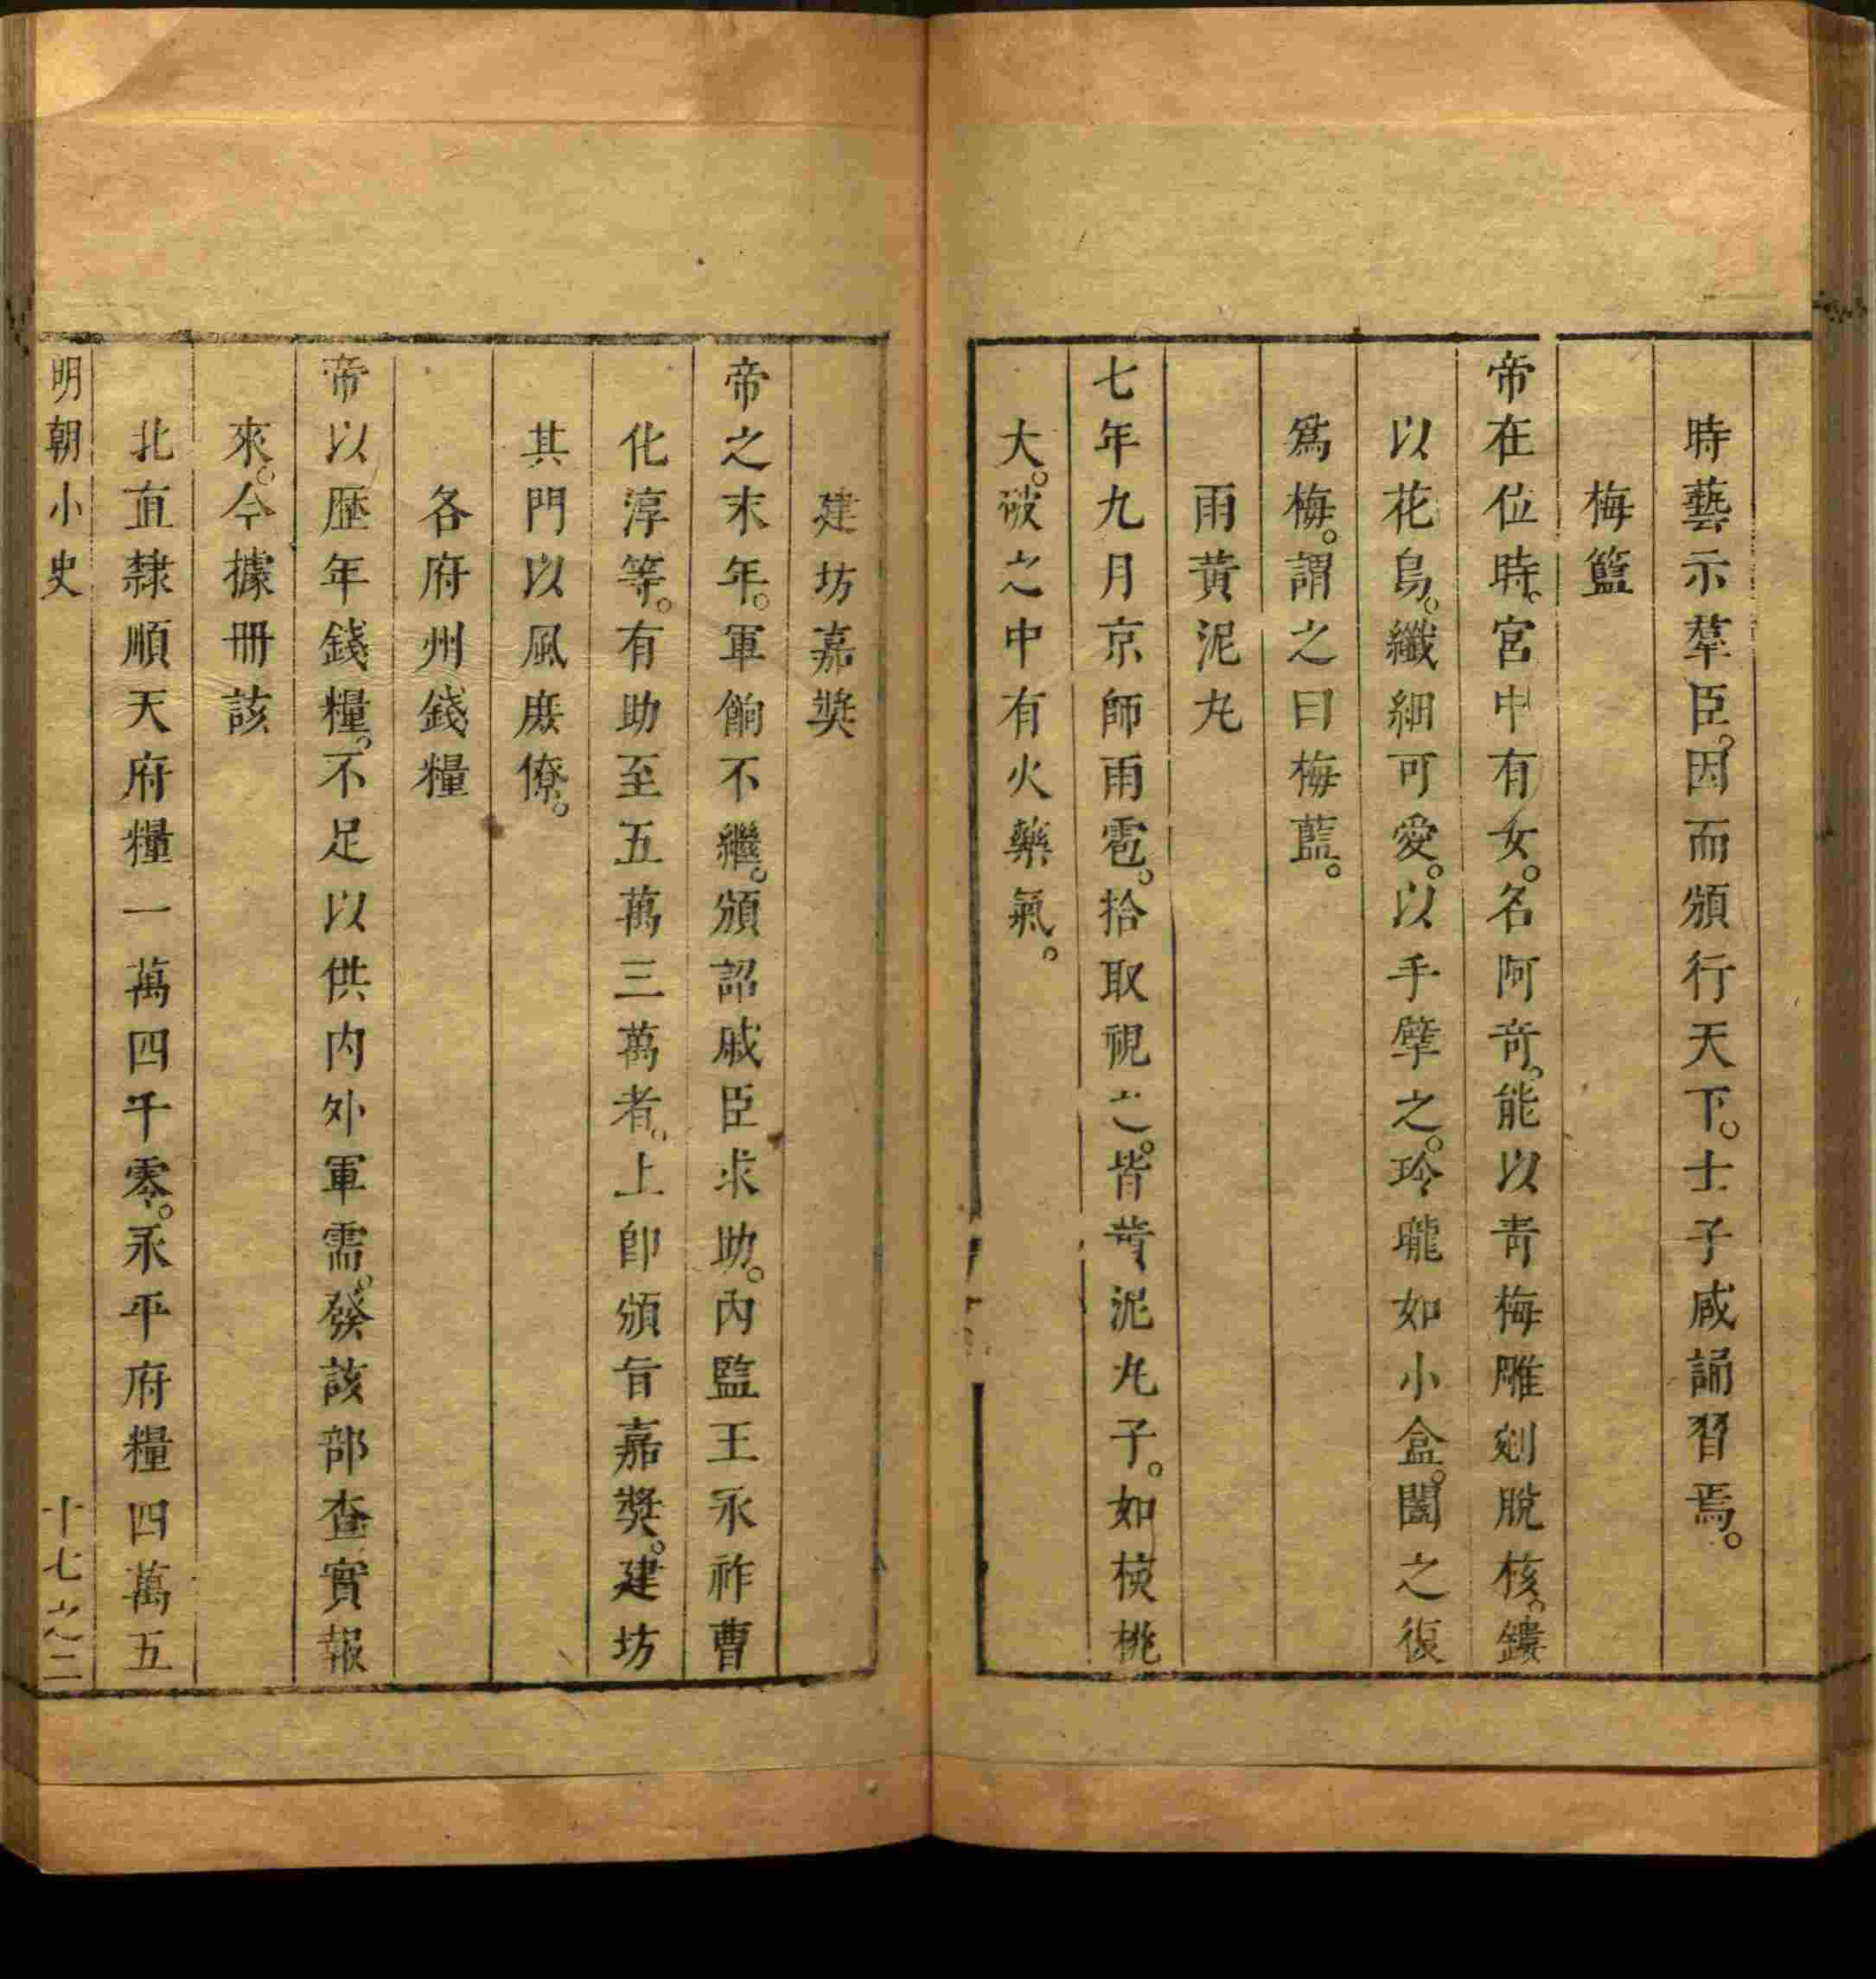 時藝示羣臣。因而頒行天下。士子咸誦習焉。
梅籃
帝在位時。宮中有女。名阿奇。能以青梅雕剜脫核。鏤
以花鳥。纖細可愛。以手擘之。玲瓏如小盒。闔之復
爲梅。謂之曰梅藍。
雨黃泥丸
七年九月京師雨雹。拾取視之。皆黃泥丸子。如核桃
大。破之中有火藥氣。
建坊嘉奬
帝之末年。軍餉不繼。頒詔戚臣求助。內監王永祚曹
化淳等。有助至五萬三萬者。上卽頒旨嘉奬。建坊
其門以風庶僚。
各府州錢糧
帝以歷年錢糧。不足以供內外軍需。發該部查實報
來。今據冊該
北直隸順天府糧一萬四千零。永平府糧四萬五
明朝小史 十七之二